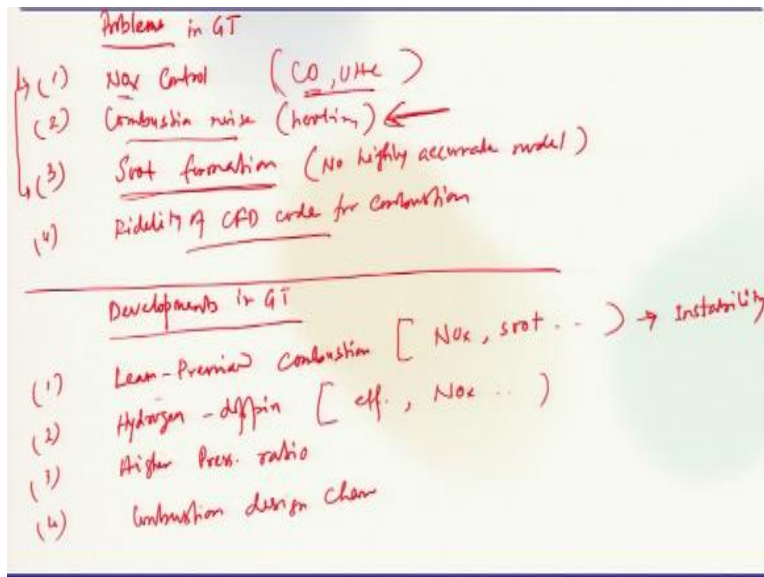 Problems in GT
(1) NOx Control (CO, UHC)
(2) Combustion noise
(3) Soot formation (No highly accurate model)
(4) Fidelity of CFD code for combustion
Developments in GT
(1) Lean-Premixed Combustion [ NOx, soot .. ) → Instability
(2) Hydrogen - [ eff., NOx .. )
(3) Higher Press. ratio
(4) Combustion design